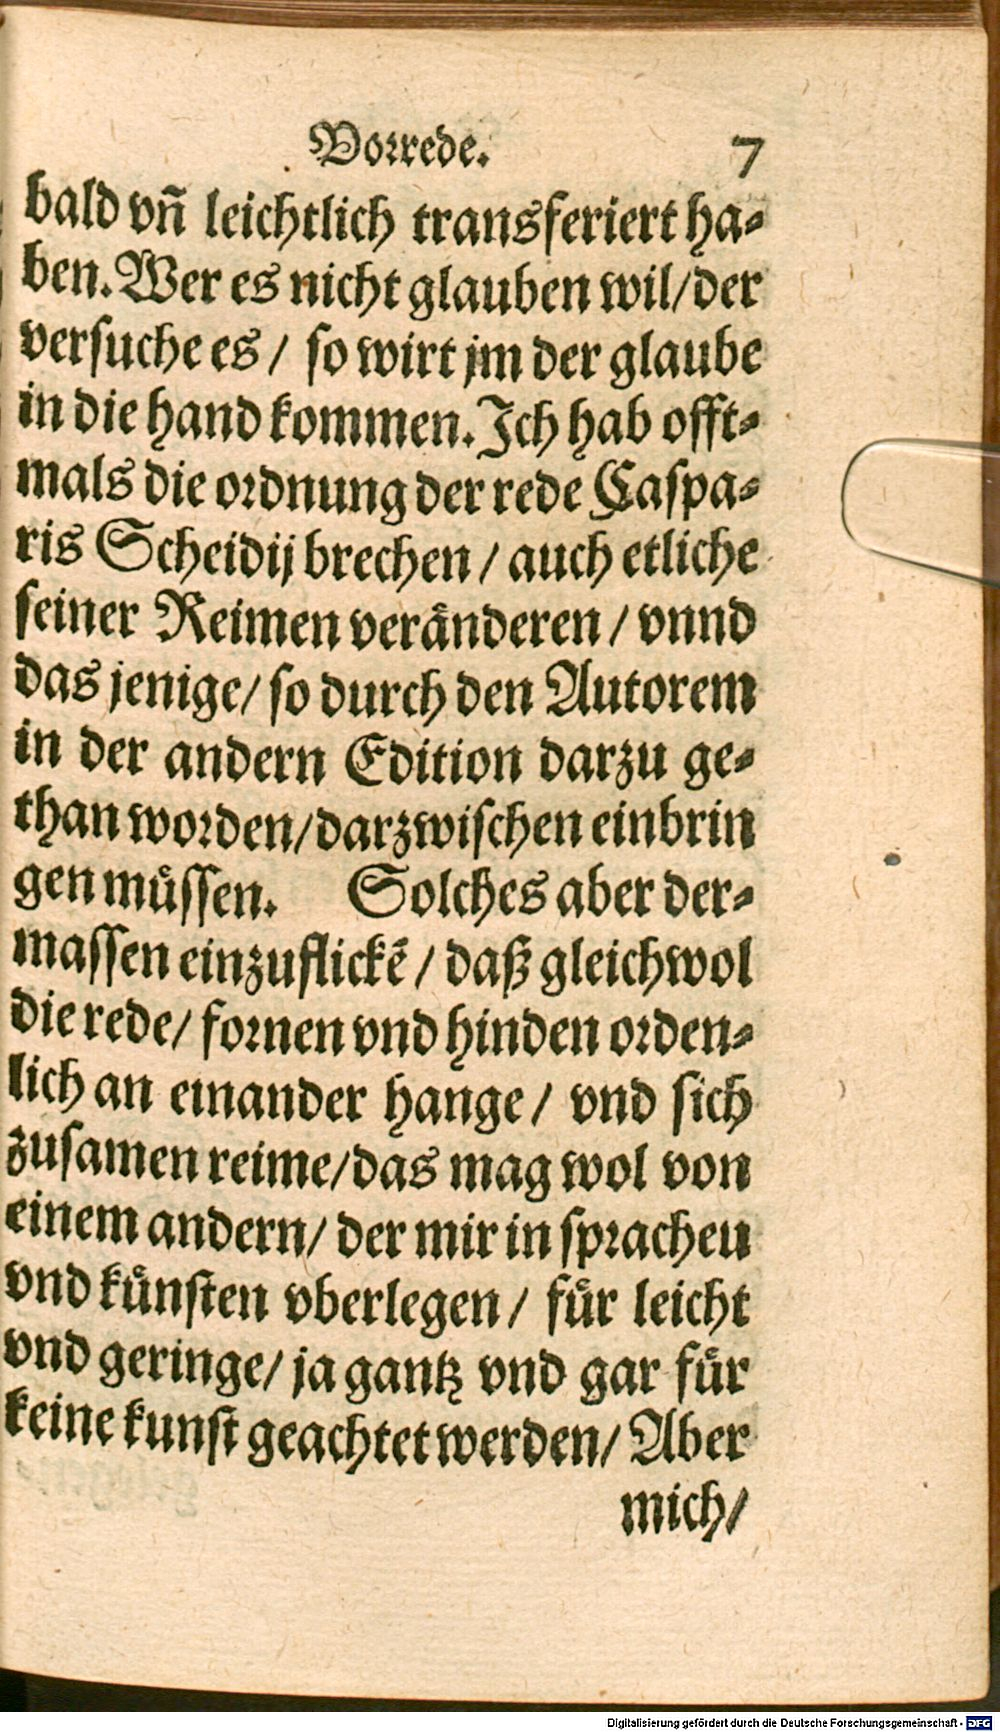 Vorrede. 7
bald vñ leichtlich transferiert ha-
ben. Wer es nicht glauben wil/ der
versuche es / so wirt jm der glaube
in die hand kommen. Ich hab offt-
mals die ordnung der rede Caspa-
ris Scheidij brechen / auch etliche
seiner Reimen veränderen / vnnd
das jenige/ so durch den Autorem
in der andern Edition darzu ge-
than worden/ darzwischen einbrin
gen müssen. Solches aber der-
massen einzuflickē / daß gleichwol
die rede/ fornen vnd hinden orden-
lich an einander hange / vnd sich
zusamen reime/ das mag wol von
einem andern/ der mir in sprachen
vnd künsten vberlegen / für leicht
vnd geringe/ ja gantz vnd gar für
keine kunst geachtet werden/ Aber
mich/
Digitalisierung gefördert durch die Deutsche Forschungsgemeinschaft - DFG